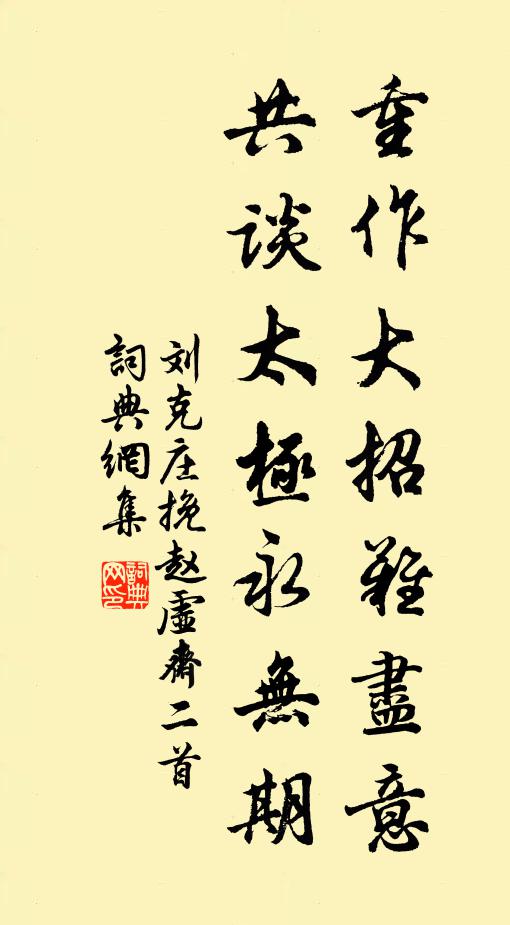 重作大招難盡意
共談太極永無期
刘克庄挽赵虛齋二首
詞典網集
詞典网印